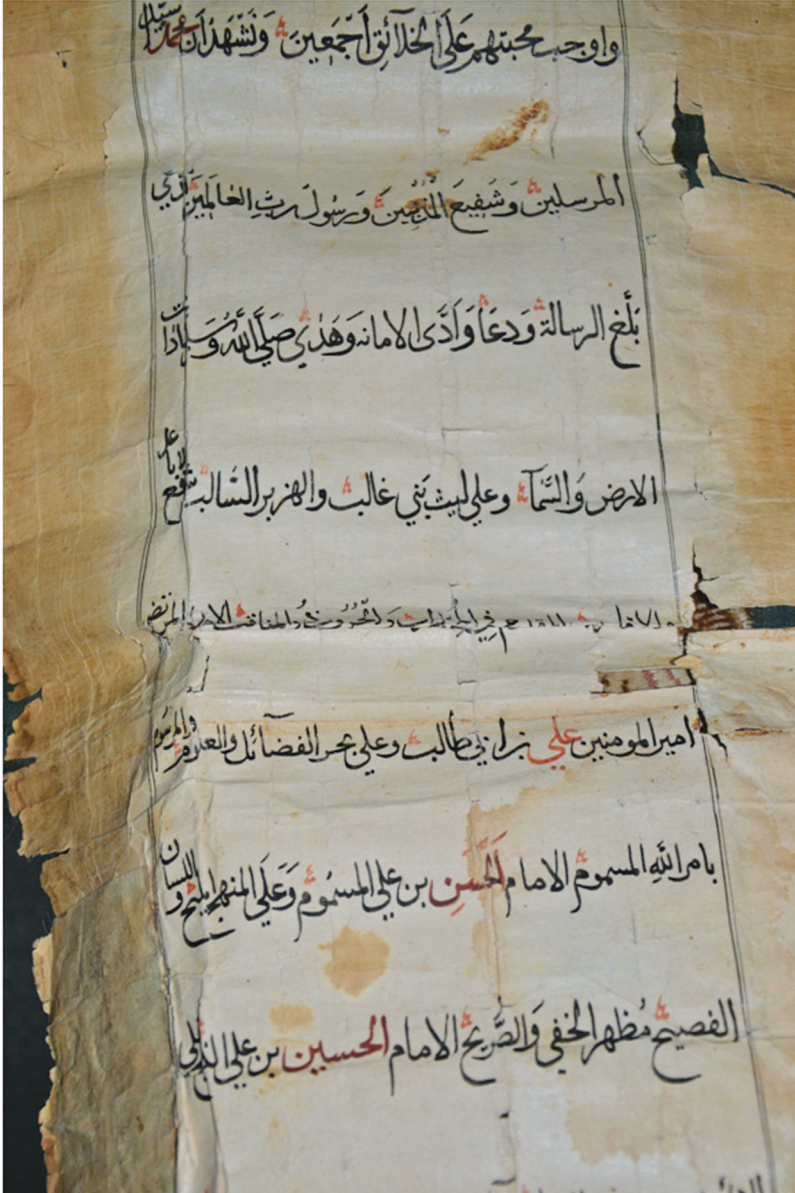 واوجب محبتهم عَلَى الخلآئق اَجْمَعينَ وَنَشْهَدُ اَن محمد سيد
المرسلين وَشَفيعَ المُذنبين وَرَسُولَ رَبِّ العٰالَميَن الذي
بَلَّغ الرسالة وَدعَا وَاَدَّى الامانه وَهَدٰى صَلَّى اللّٰه وَسَلم
الارض وَالسَّمآ وعلي ليث بَني غالب والهزبر السَّالب
والمناقب الامام المرتضى
امير المومنين علي بن ابي طالب وعلى بحر الفضآئل والعلوم والمرسوم
بامر اللّٰهِ المسموم الامام الحَسَنِ بن علي المسمُوم وَعَلَى المنهج واللسان
الفصيح مُظهر الخفي وَالصَّريح الامام الحسين بن علي